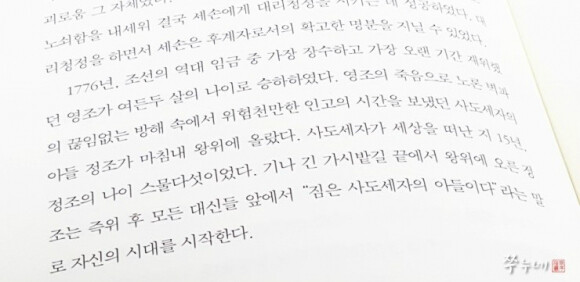 괴로움 그 자체였다.
노쇠함을 내세워 결국 세손에게 대리청정을 시키는 데 성공하였다. 대
리청정을 하면서 세손은 후계자로서의 확고한 명분을 지닐 수 있었다.
1776년, 조선의 역대 임금 중 가장 장수하고 가장 오랜 기간 재위했
던 영조가 여든두 살의 나이로 승하하였다. 영조의 죽음으로 노론 벽파
의 끊임없는 방해 속에서 위험천만한 인고의 시간을 보냈던 사도세자의
아들 정조가 마침내 왕위에 올랐다. 사도세자가 세상을 떠난 지 15년,
정조의 나이 스물다섯이었다. 기나 긴 가시밭길 끝에서 왕위에 오른 정
조는 즉위 후 모든 대신들 앞에서 “짐은 사도세자의 아들이다”라는 말
로 자신의 시대를 시작한다.